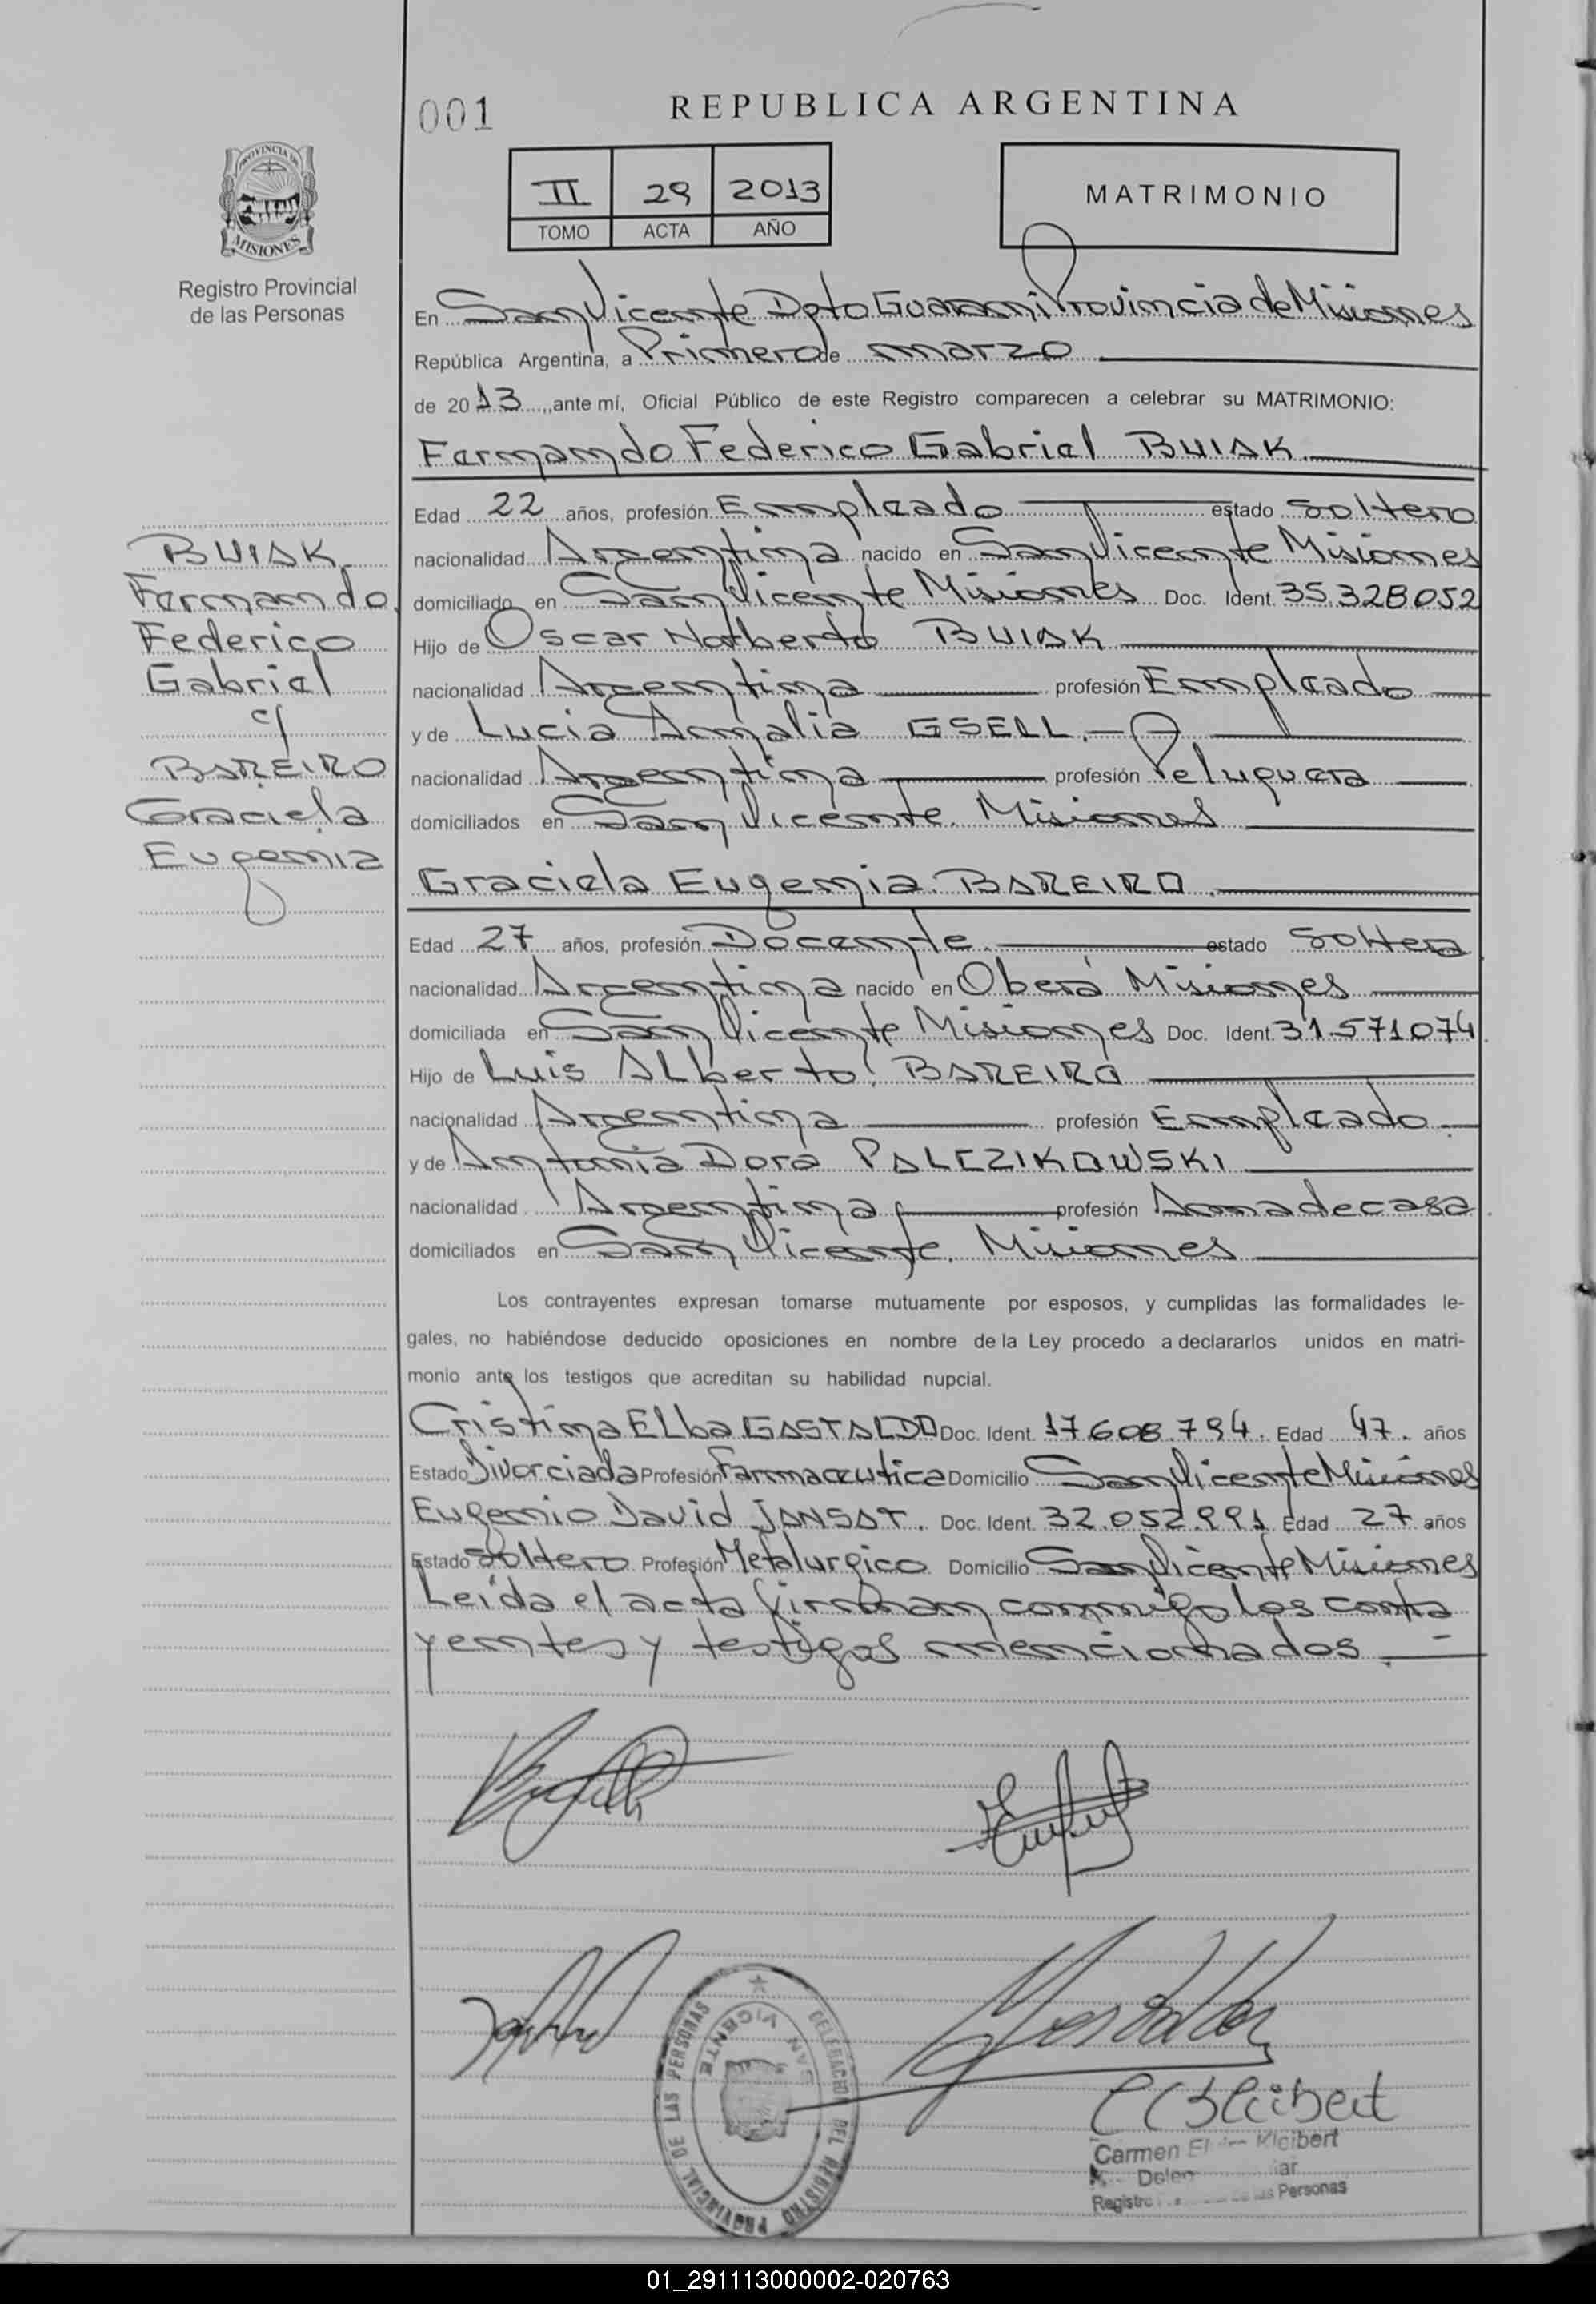 001
REPUBLICA ARGENTINA
II 29 2013
TOMO ACTA AÑO
MATRIMONIO
PROVINCIA DE
MISIONES
Registro Provincial
de las Personas
BUIAK
Fernando
Federico
Gabriel
c/
BAREIRO
Graciela
Eugenia
En San Vicente Dpto Guarani Provincia de Misiones
República Argentina, a Primero de marzo
de 2013, ante mí, Oficial Público de este Registro comparecen a celebrar su MATRIMONIO:
Fernando Federico Gabriel BUIAK
Edad 22 años, profesión Empleado estado soltero
nacionalidad Argentina nacido en San Vicente Misiones
domiciliado en San Vicente Misiones Doc. Ident. 35.328052
Hijo de Oscar Norberto BUIAK
nacionalidad Argentina profesión Empleado
y de Lucia Amalia GSELL.-
nacionalidad Argentina profesión Peluquera
domiciliados en San Vicente. Misiones
Graciela Eugenia BAREIRO.
Edad 27 años, profesión Docente. estado soltera
nacionalidad Argentina nacido en Oberá Misiones
domiciliada en San Vicente Misiones Doc. Ident. 31.571074
Hijo de Luis Alberto BAREIRO
nacionalidad Argentina profesión Empleado
y de Antonia Dora PALEZIKOWSKI
nacionalidad Argentina profesión Ama de casa
domiciliados en San Vicente. Misiones
Los contrayentes expresan tomarse mutuamente por esposos, y cumplidas las formalidades le-
gales, no habiéndose deducido oposiciones en nombre de la Ley procedo a declararlos unidos en matri-
monio ante los testigos que acreditan su habilidad nupcial.
Cristina Elba GASTALDO Doc. Ident. 17.608.794. Edad 47. años
Estado Divorciada Profesión Farmaceutica Domicilio San Vicente Misiones
Eugenio David JANSAT. Doc. Ident. 32.052.991 Edad 27 años
Estado soltero Profesión Metalurgico Domicilio San Vicente Misiones
Leída el acta firman conmigo los contra
yentes y testigos mencionados.
DELEGACION DEL REGISTRO PROVINCIAL DE LAS PERSONAS
SAN VICENTE
Carmen Kleibert
Registro las Personas
01_291113000002-020763